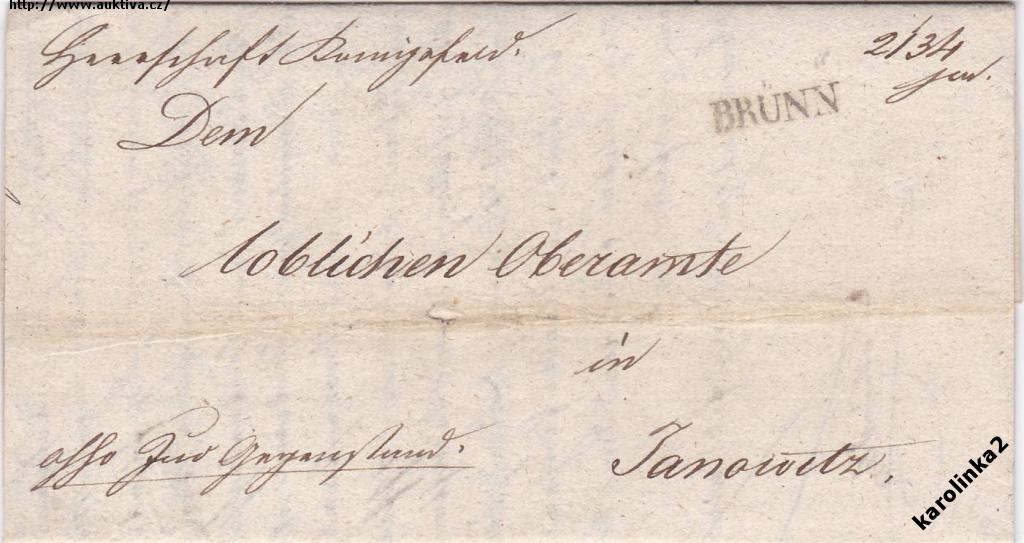 http://www.auktiva.cz/
Herrschaft Königsfeld.
2/34
BRÜNN
Dem
löblichen Oberamte
in
Gegenstand.
Janowitz.
karolinka2